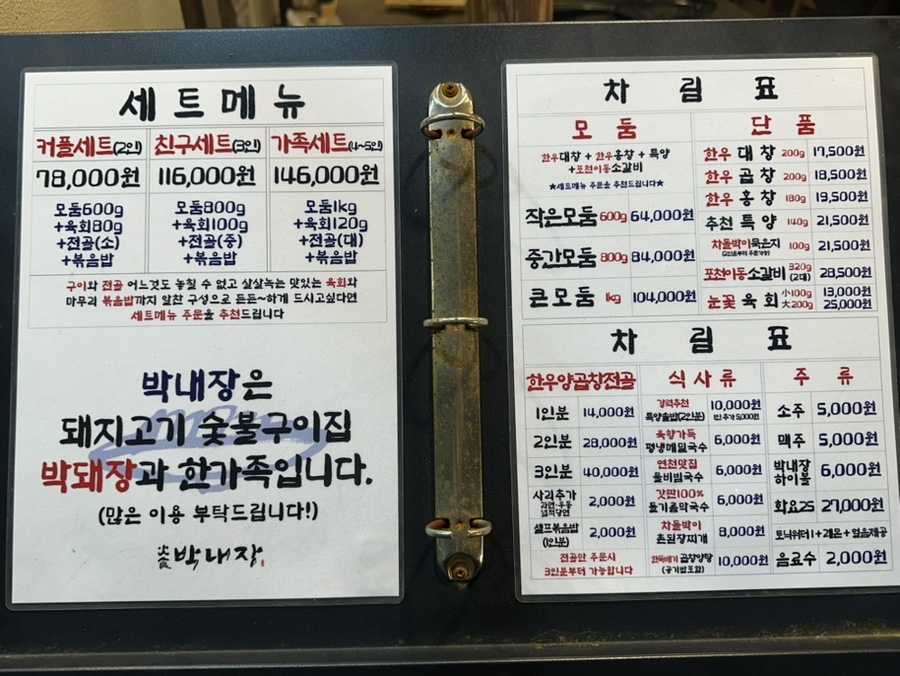 세트메뉴
커플세트(2인) 친구세트(3인) 가족세트(4~5인)
78,000원 116,000원 146,000원
모둠600g 모둠800g 모둠1kg
+육회80g +육회100g +육회120g
+전골(소) +전골(중) +전골(대)
+볶음밥 +볶음밥 +볶음밥
구이와 전골 어느것도 놓칠 수 없고 살살녹는 맛있는 육회와
마무리 볶음밥까지 알찬 구성으로 든든~하게 드시고싶다면
세트메뉴 주문을 추천드립니다
박내장은
돼지고기 숯불구이집
박돼장과 한가족입니다.
(많은 이용 부탁드립니다!)
박내장
차림표
모둠
한우대창 + 한우홍창 + 특양
+포천이동소갈비
★세트메뉴 주문을 추천드립니다★
작은모둠 600g 64,000원
중간모둠 800g 84,000원
큰모둠 1kg 104,000원
단품
한우 대창 200g 17,500원
한우 곱창 200g 18,500원
한우 홍창 180g 19,500원
추천 특양 140g 21,500원
차돌박이묵은지 100g 21,500원
포천이동소갈비 320g (2대) 28,500원
눈꽃 육회 小100g 13,000원
大200g 25,000원
차림표
한우양곱창전골
1인분 14,000원
2인분 28,000원
3인분 40,000원
사리추가 2,000원
라면·우동
넓적당면
셀프볶음밥 2,000원
(1인분)
전골만 주문시
3인분부터 가능합니다
식사류
강력추천
특양솥밥(2인분) 10,000원
1인 추가 5,000원
육향가득
평냉메밀국수 6,000원
연천맛집
물비빔국수 6,000원
갓짠100%
들기름막국수 6,000원
차돌박이
촌된장찌개 8,000원
한뚝배기 곱창양탕 10,000원
(공기밥포함)
주류
소주 5,000원
맥주 5,000원
박내장
하이볼 6,000원
화요25 27,000원
토닉워터1+레몬+얼음제공
음료수 2,000원